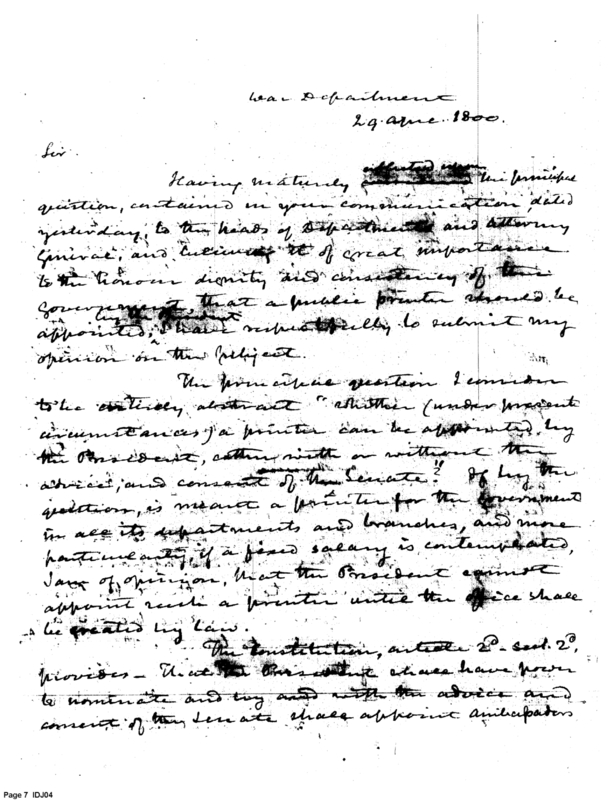 War Department
29. April. 1800.
Sir.
Having maturely reflected upon the principal
question, contained in your communication dated
yesterday, to the heads of Departments and Attorney
General, and it of great importance
to the honour dignity and consistency of the
Government, that a public printer should be
by the President
appointed, I have respectfully to submit my
opinion on the subject.
The principal question I consider
to be entirely abstract "whether (under present
circumstances) a printer can be appointed by
the President, either with or without the
advice, and consent of the Senate?" If by the
question, is meant a printer for the Government
in all its departments and branches, and more
particularly, if a fixed salary is contemplated,
I am of opinion, that the President cannot
appoint such a printer until the office shall
be created by law.
The Constitution, article 2d. sect. 2d,
provides – That the President shall have power
to nominate and by and with the advice and
consent of the Senate shall appoint ambassadors
Page 7 IDJ04